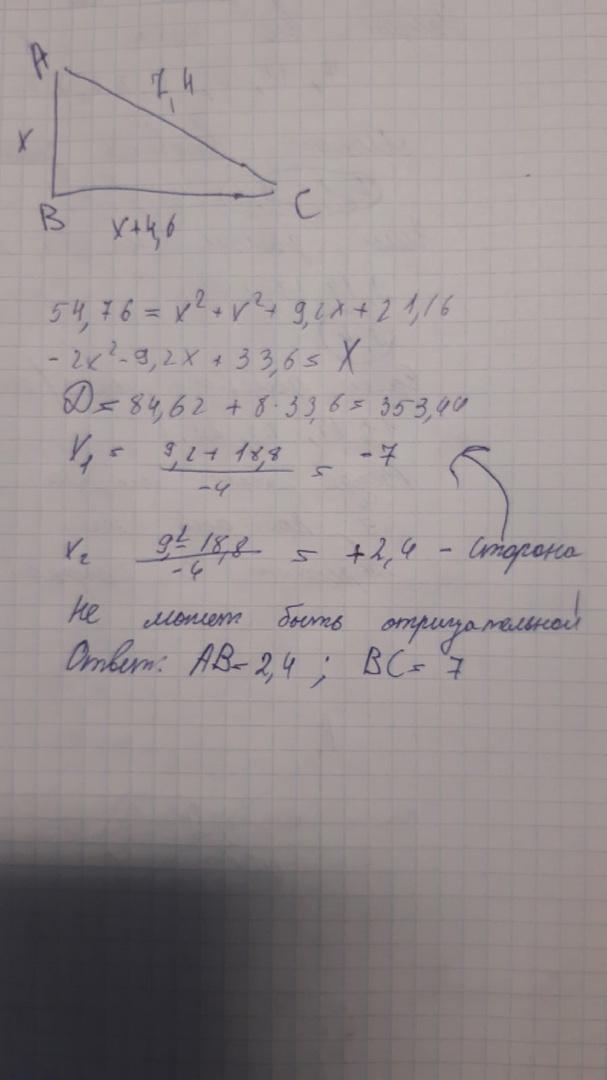 A
7,4
x
B
C
x+4,6
54,76 = x² + x² + 9,2x + 21,16
-2x² - 9,2x + 33,6 = X
D = 84,62 + 8·33,6 = 353,44
X₁ = (9,2 + 18,8)/-4 = -7
x₂ (9,2 - 18,8)/-4 = +2,4 - сторона
не может быть отрицательной
Ответ: AB = 2,4 ; BC = 7